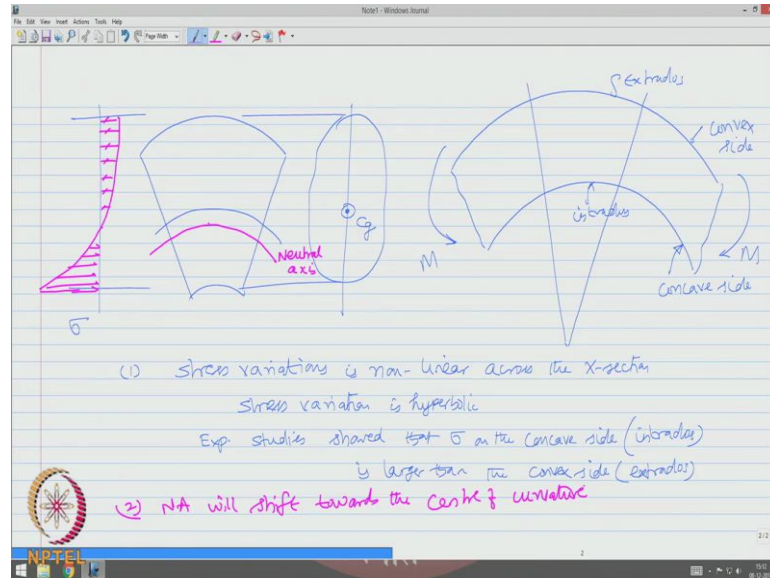 Note1 - Windows Journal
File Edit View Insert Actions Tools Help
Page Width
extrados
convex
side
intrados
M
M
concave side
Cg
Neutral
axis
σ
(1) Stress variations is non-linear across the x-section
stress variation is hyperbolic
Exp. studies showed that σ on the concave side (intrados)
is larger than the convex side (extrados)
(2) NA will shift towards the centre of curvature
NPTEL
2/2
2
15:12